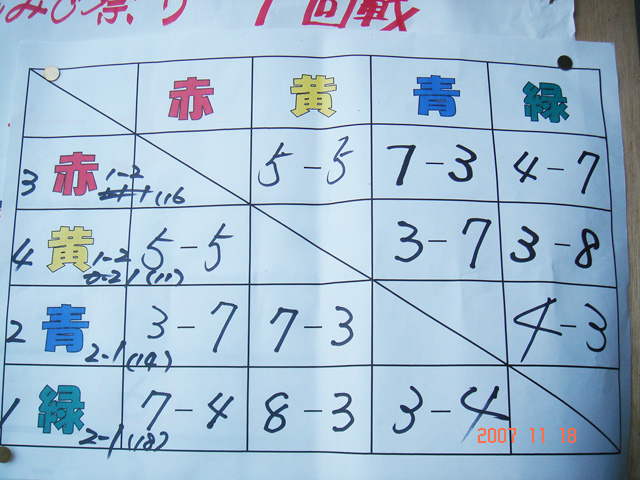 みび祭り 1回戦
赤 黄 青 緑
3 赤 1-2 (16 5-5 7-3 4-7
4 黄 1-2 (11) 5-5 3-7 3-8
2 青 2-1 (14) 3-7 7-3 4-3
1 緑 2-1 (18) 7-4 8-3 3-4
2007 11 18